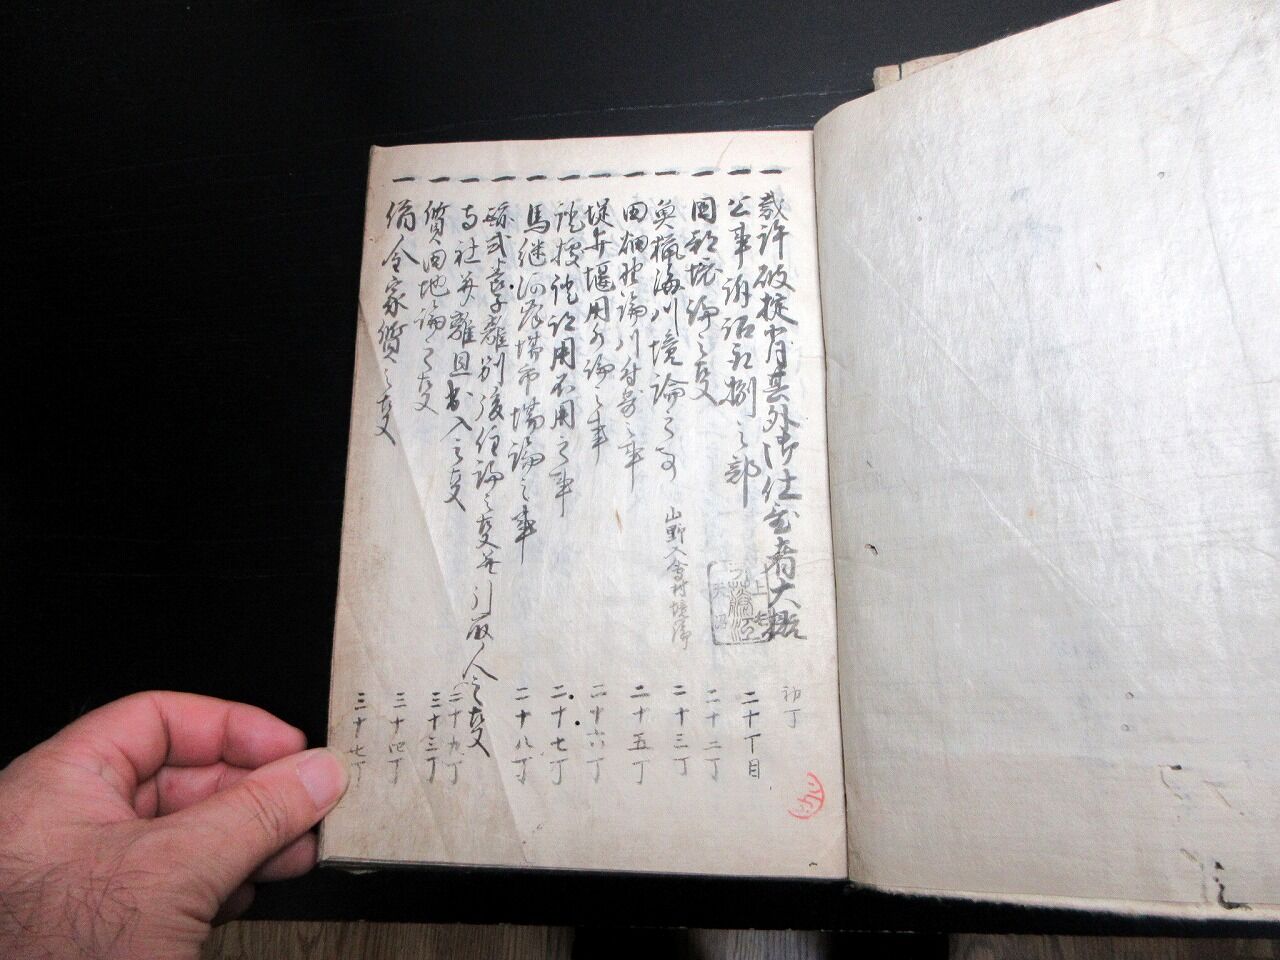 一 裁許破掟背其外御仕置者大概 初丁
一 公事訴訟取捌之部 二十丁目
一 国郡境論之事 二十二丁
一 魚猟海川境論之事 山野入会村境等 二十三丁
一 田畑野論川附寄之事 二十五丁
一 堤井堰用水論之事 二十六丁
一 証拠証跡用不用之事 二十七丁
一 馬継河岸場市場論之事 二十八丁
一 跡式養子離別後住論之事并引取人之事 二十九丁
一 寺社并離旦出入之事 三十三丁
一 質田地論之事 三十四丁
一 借金家質之事 三十七丁
上毛
天沼